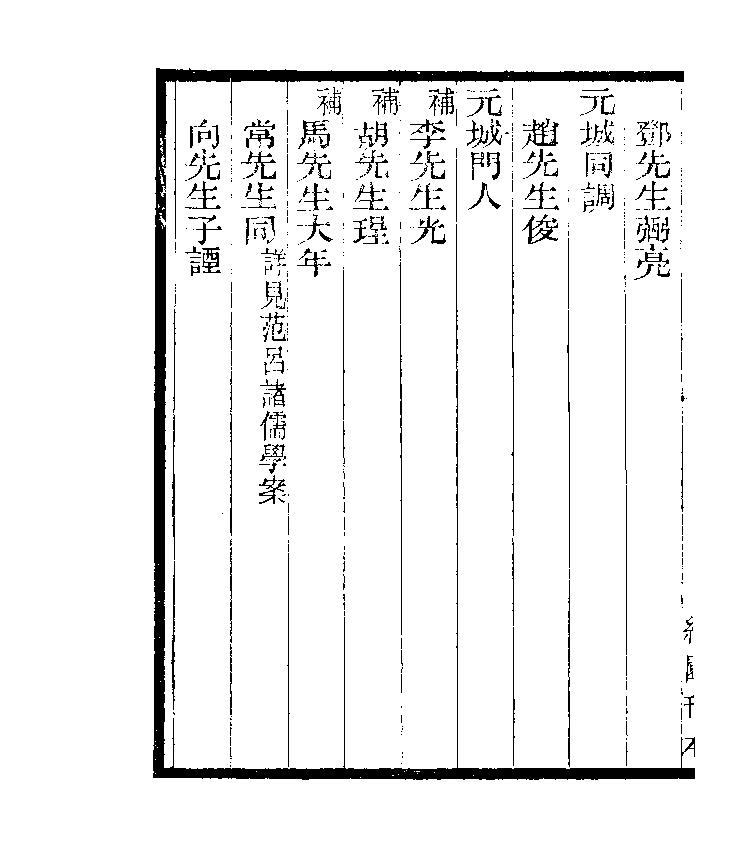 鄧先生弼亮
元城同調
趙先生俊
元城門人
補 李先生光
補 胡先生珵
補 馬先生大年
常先生同 詳見范呂諸儒學案
向先生子諲
約園刊本